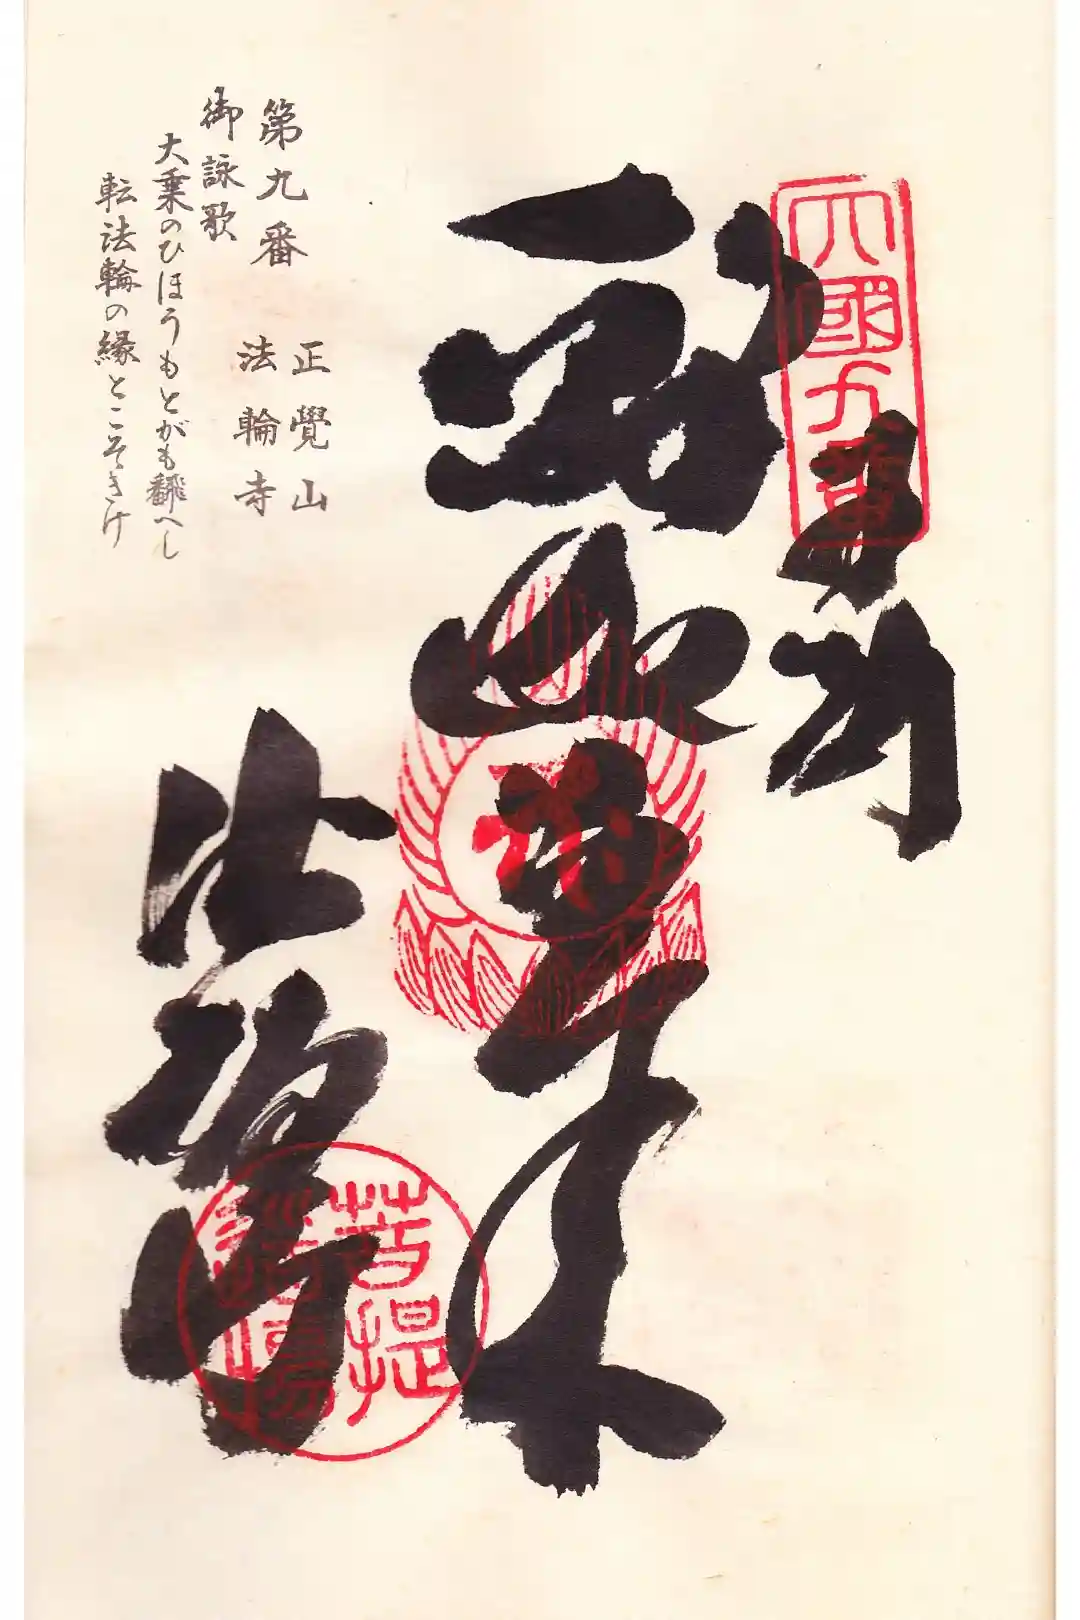 四國九番
奉納
法輪寺
菩提
第九番
正覺山
法輪寺
御詠歌
大乗のひほうもとがも飜へし
転法輪の縁とこそきけ